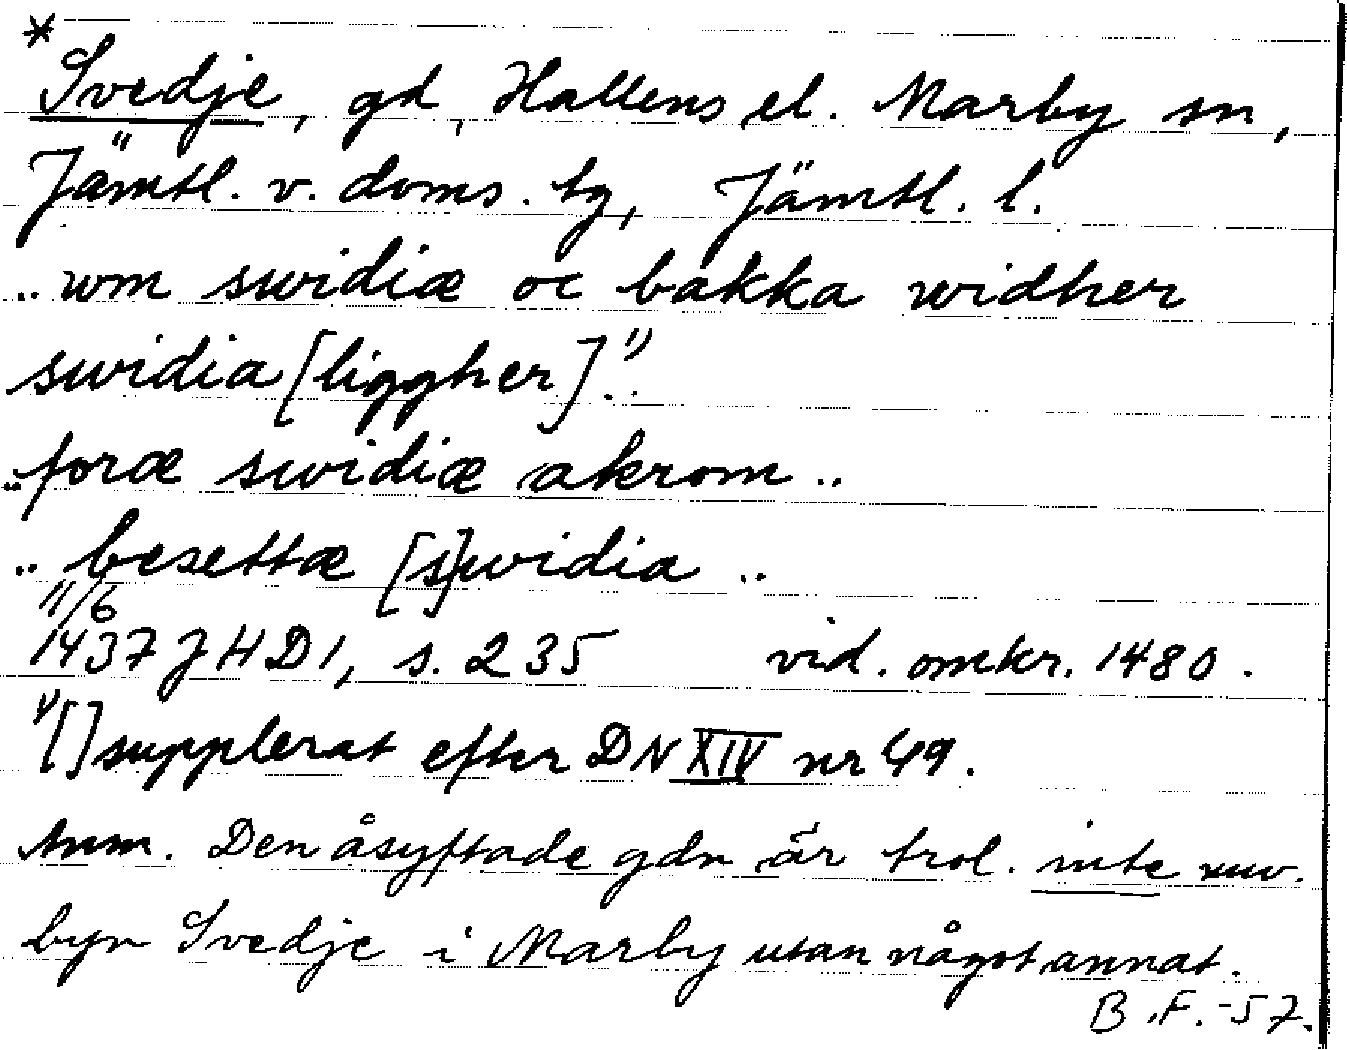 *
Svedje, gd, Hallens el. Marby sn,
Jämtl. v. doms. tg, Jämtl. l.
.. wm swidiæ oc bakka widher
swidia [ligger]¹⁾..
..foræ swidiæ akrom ..
.. besettæ [s]widia ..
11/6
1437 JHD1, s. 235 vid. omkr. 1480.
¹⁾[] supplerat efter DN XIV nr 49.
Anm. Den åsyftade gdn är trol. inte nuv.
byn Svedje i Marby utan något annat.
B.F.-57.